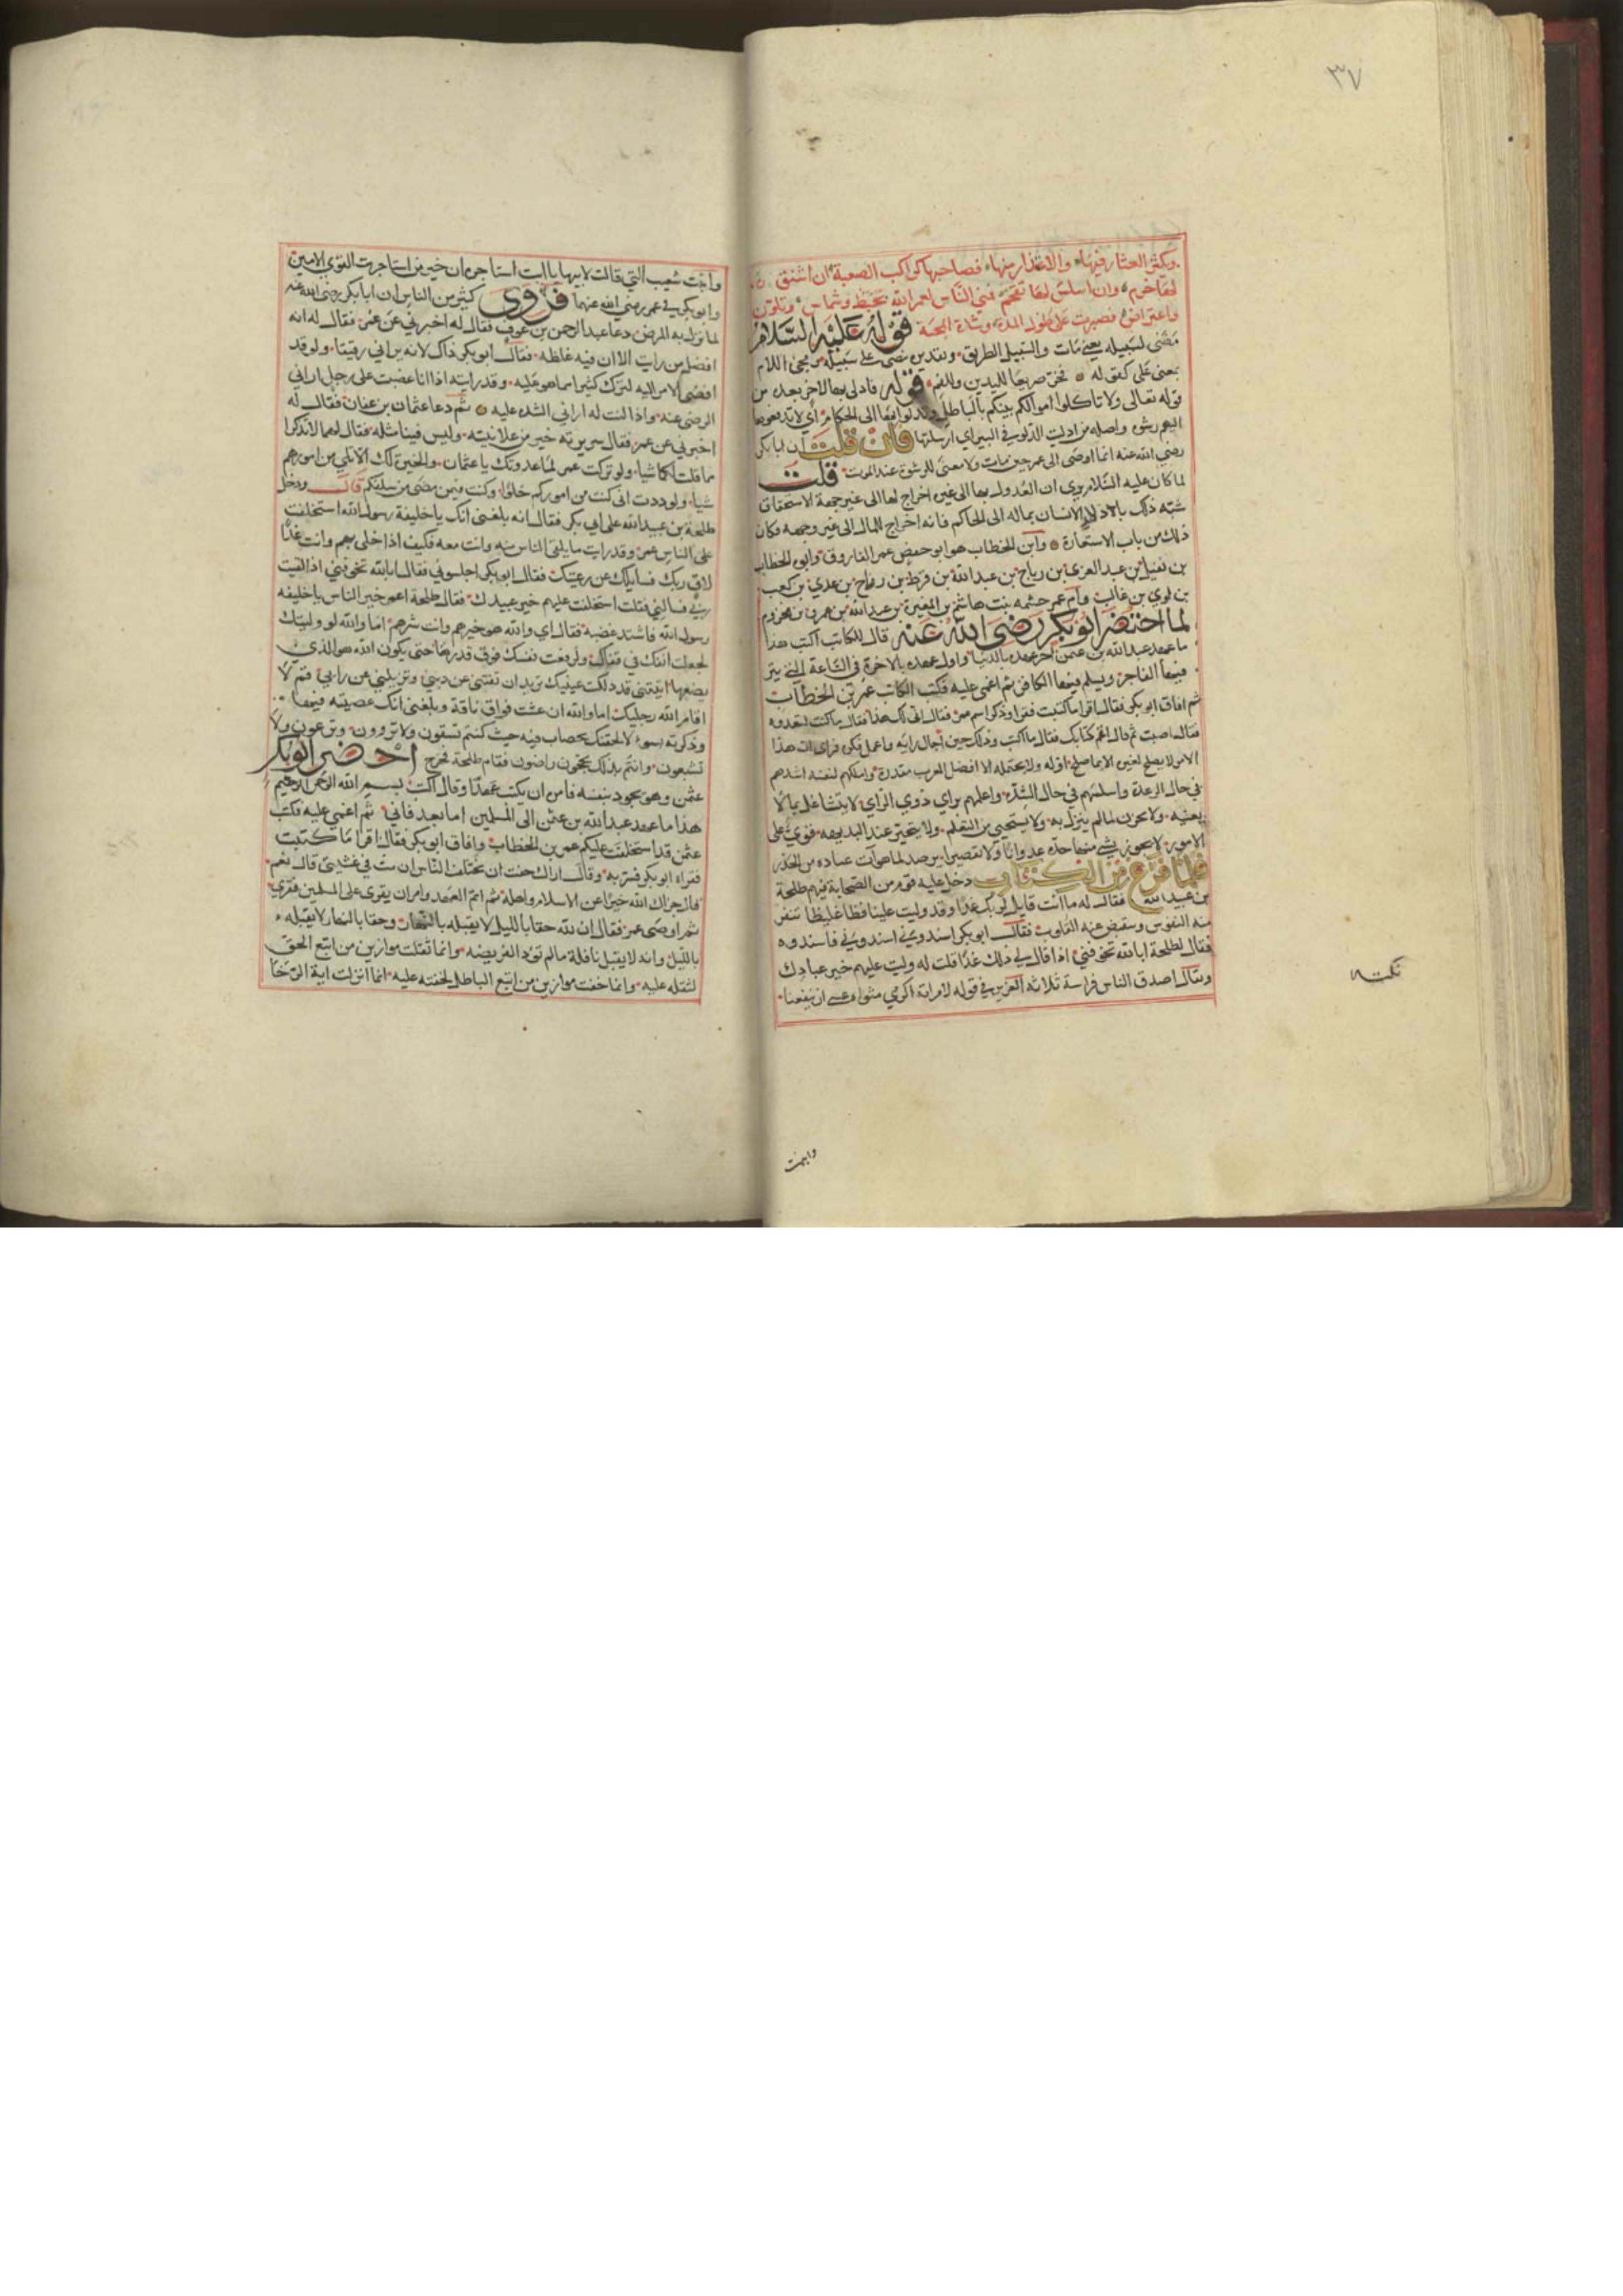 ٣٧
ويكثر العثار فيها والاعتذار منها فصاحبها كراكب الصعبة ان اشنق
لها خرم وان اسلس لها تقحم فمني الناس لعمر الله بخبط وشماس وتلون
واعتراض فصبرت على طول المدة وشدة المحنة قوله عليه السلام
مضى لسبيله يعني مات والسبيل الطريق وتقديره مضى على سبيله ومجئ اللام
بمعنى على كقوله فخر صريعا لليدين وللفم قوله فادلى بها لاخر بعده من
قوله تعالى ولا تاكلوا اموالكم بينكم بالباطل وتدلوا بها الى الحكام أي لا تدفعوها
اليهم رشوه واصله من ادليت الدلو في البير اي ارسلتها فان قلت ان ابا بكر
رضي الله عنه انما اوصى الى عمر حين مات ولا معنى للرشوة عند الموت قلت
لما كان عليه السلام يرى ان العدول بها الى غيره اخراج لها الى غير جهة الاستحقاق
شبه ذلك بادلاء الانسان بماله الى الحاكم فانه اخراج المال الى غير وجهه فكان
ذلك من باب الاستعارة وابن الخطاب هو ابو حفص عمر الفاروق وابوه الخطاب
بن نفيل بن عبد العزى بن رياح بن عبد الله بن قرط بن رزاح بن عدي بن كعب
بن لوي بن غالب وام عمر حنتمه بنت هاشم بن المغيرة بن عبد الله بن عمر بن مخزوم
لما احتضر ابو بكر رضي الله عنه قال للكاتب اكتب هذا
ما عهد عبد الله بن عثمن آخر عهده بالدنيا واول عهده بالاخرة في الساعة التي يبر
فيها الفاجر ويسلم فيها الكافر ثم اغمى عليه فكتب الكاتب عمر بن الخطاب
ثم افاق ابو بكر فقال اقرا ما كتبت فقرا وذكر اسم عمر فقال انى لك هذا فقال ما كنت لتعدوه
فقال اصبت ثم قال اتم كتابك فقال ما اكتب وذلك حين اجال رايه واعمل فكره فراى ان هذا
الامر لا يصلح اخره الا بما صلح اوله ولا يحتمله الا افضل العرب مقدرة واملكهم لنفسه اشدهم
في حال الشدة واسلسهم في حال اللين واعلمهم براي ذوي الراي لا يتشاغل بما لا
يعنيه ولا يحزن لما لم ينزل به ولا يستحيي من التعلم ولا يتحير عند البديهه قوي على
الامور لا يجوز بشئ منها حده عدوانا ولا تقصيرا يرصد لما هو آت عتاده من الحذر
فلما فرغ من الكتاب دخل عليه قوم من الصحابة فيهم طلحة
بن عبيد الله فقال له ما انت قايل لربك غدا وقد وليت علينا فظا غليظا تنفر
منه النفوس وتنقبض عنه القلوب فقال ابو بكر اسندوني اسندوني فاسندوه
فقال لطلحة ابالله تخوفني اذا قال لي ذلك غدا قلت له وليت عليهم خير عبادك
ويقال اصدق الناس فراسة ثلاثه العزيز في قوله لامراته اكرمي مثواه عسى ان ينفعنا
نكته
وابنت
وابنت شعيب التي قالت لابيها يا ابت استاجره ان خير من استاجرت القوي الامين
وابو بكر في عمر رضي الله عنهما فروى كثير من الناس ان ابا بكر رضي الله عنه
لما نزل به المرض دعا عبد الرحمن بن عوف فقال له اخبرني عن عمر فقال له انه
افضل من رايت الا ان فيه غلظه فقال ابو بكر ذاك لانه يراني رقيقا ولو قد
افضى الامر اليه لترك كثيرا مما هو عليه وقد رايته اذا انا غضبت على رجل اراني
الرضى عنه واذا لنت له اراني الشده عليه ثم دعا عثمان بن عفان فقال له
اخبرني عن عمر فقال سريرته خير من علانيته وليس فينا مثله فقال لهما لا تذكرا
مما قلت لكما شيا ولو تركت عمر لما عدوتك يا عثمان والخيرة لك الا تلي من امورهم
شيا ولوددت اني كنت من اموركم خلوا وكنت فيمن مضى من سلفكم قال ودخل
طلحة بن عبيد الله على ابي بكر فقال انه بلغني انك يا خليفة رسول الله استخلفت
على الناس عمر وقد رايت ما يلقى الناس منه وانت معه فكيف اذا خلى بهم وانت غدا
لاق ربك فسايلك عن رعيتك فقال ابو بكر اجلسوني فقال ابالله تخوفني اذا لقيت
ربي فسالني فقلت استخلفت عليهم خير عبيدك فقال طلحة اعمر خير الناس يا خليفه
رسول الله فاشتد غضبه فقال اي والله هو خيرهم وانت شرهم اما والله لو وليتك
لجعلت انفك في قفاك ولرفعت نفسك فوق قدرها حتى يكون الله هو الذي
يضعها اتيتني قد دلكت عينيك تريد ان تفتنني عن ديني وتزيلني عن رايي قم لا
اقام الله رجليك اما والله ان عشت فواق ناقة وبلغني انك عصيته فيها
وذكرته بسوء لالحقنك بحصاب فيه حيث كنتم تسقون ولا تروون وترعون ولا
تشبعون وانتم بذلك بجحون راضون فقام طلحة فخرج احضر ابو بكر
عثمن وهو يجود بنفسه فامره ان يكتب عهدا وقال اكتب بسم الله الرحمن الرحيم
هذا ما عهد عبد الله بن عثمن الى المسلمين اما بعد فاني ثم اغمي عليه فكتب
عثمن قد استخلفت عليكم عمر بن الخطاب وافاق ابو بكر فقال اقرا ما كتبت
فقراه ابو بكر فسر به وقال اراك خفت ان يختلف الناس ان مت في غشيتي قال نعم
قال جزاك الله خيرا عن الاسلام واهله ثم اتم العهد وامر ان يقرى على المسلمين فقرئ
ثم اوصى عمر فقال ان لله حقا بالليل لا يقبله بالنهار وحقا بالنهار لا يقبله
بالليل وانه لا يقبل نافلة ما لم تؤد الفريضه وانما ثقلت موازين من اتبع الحق
لثقله عليه وانما خفت موازين من اتبع الباطل لخفته عليه انما انزلت اية الرخا